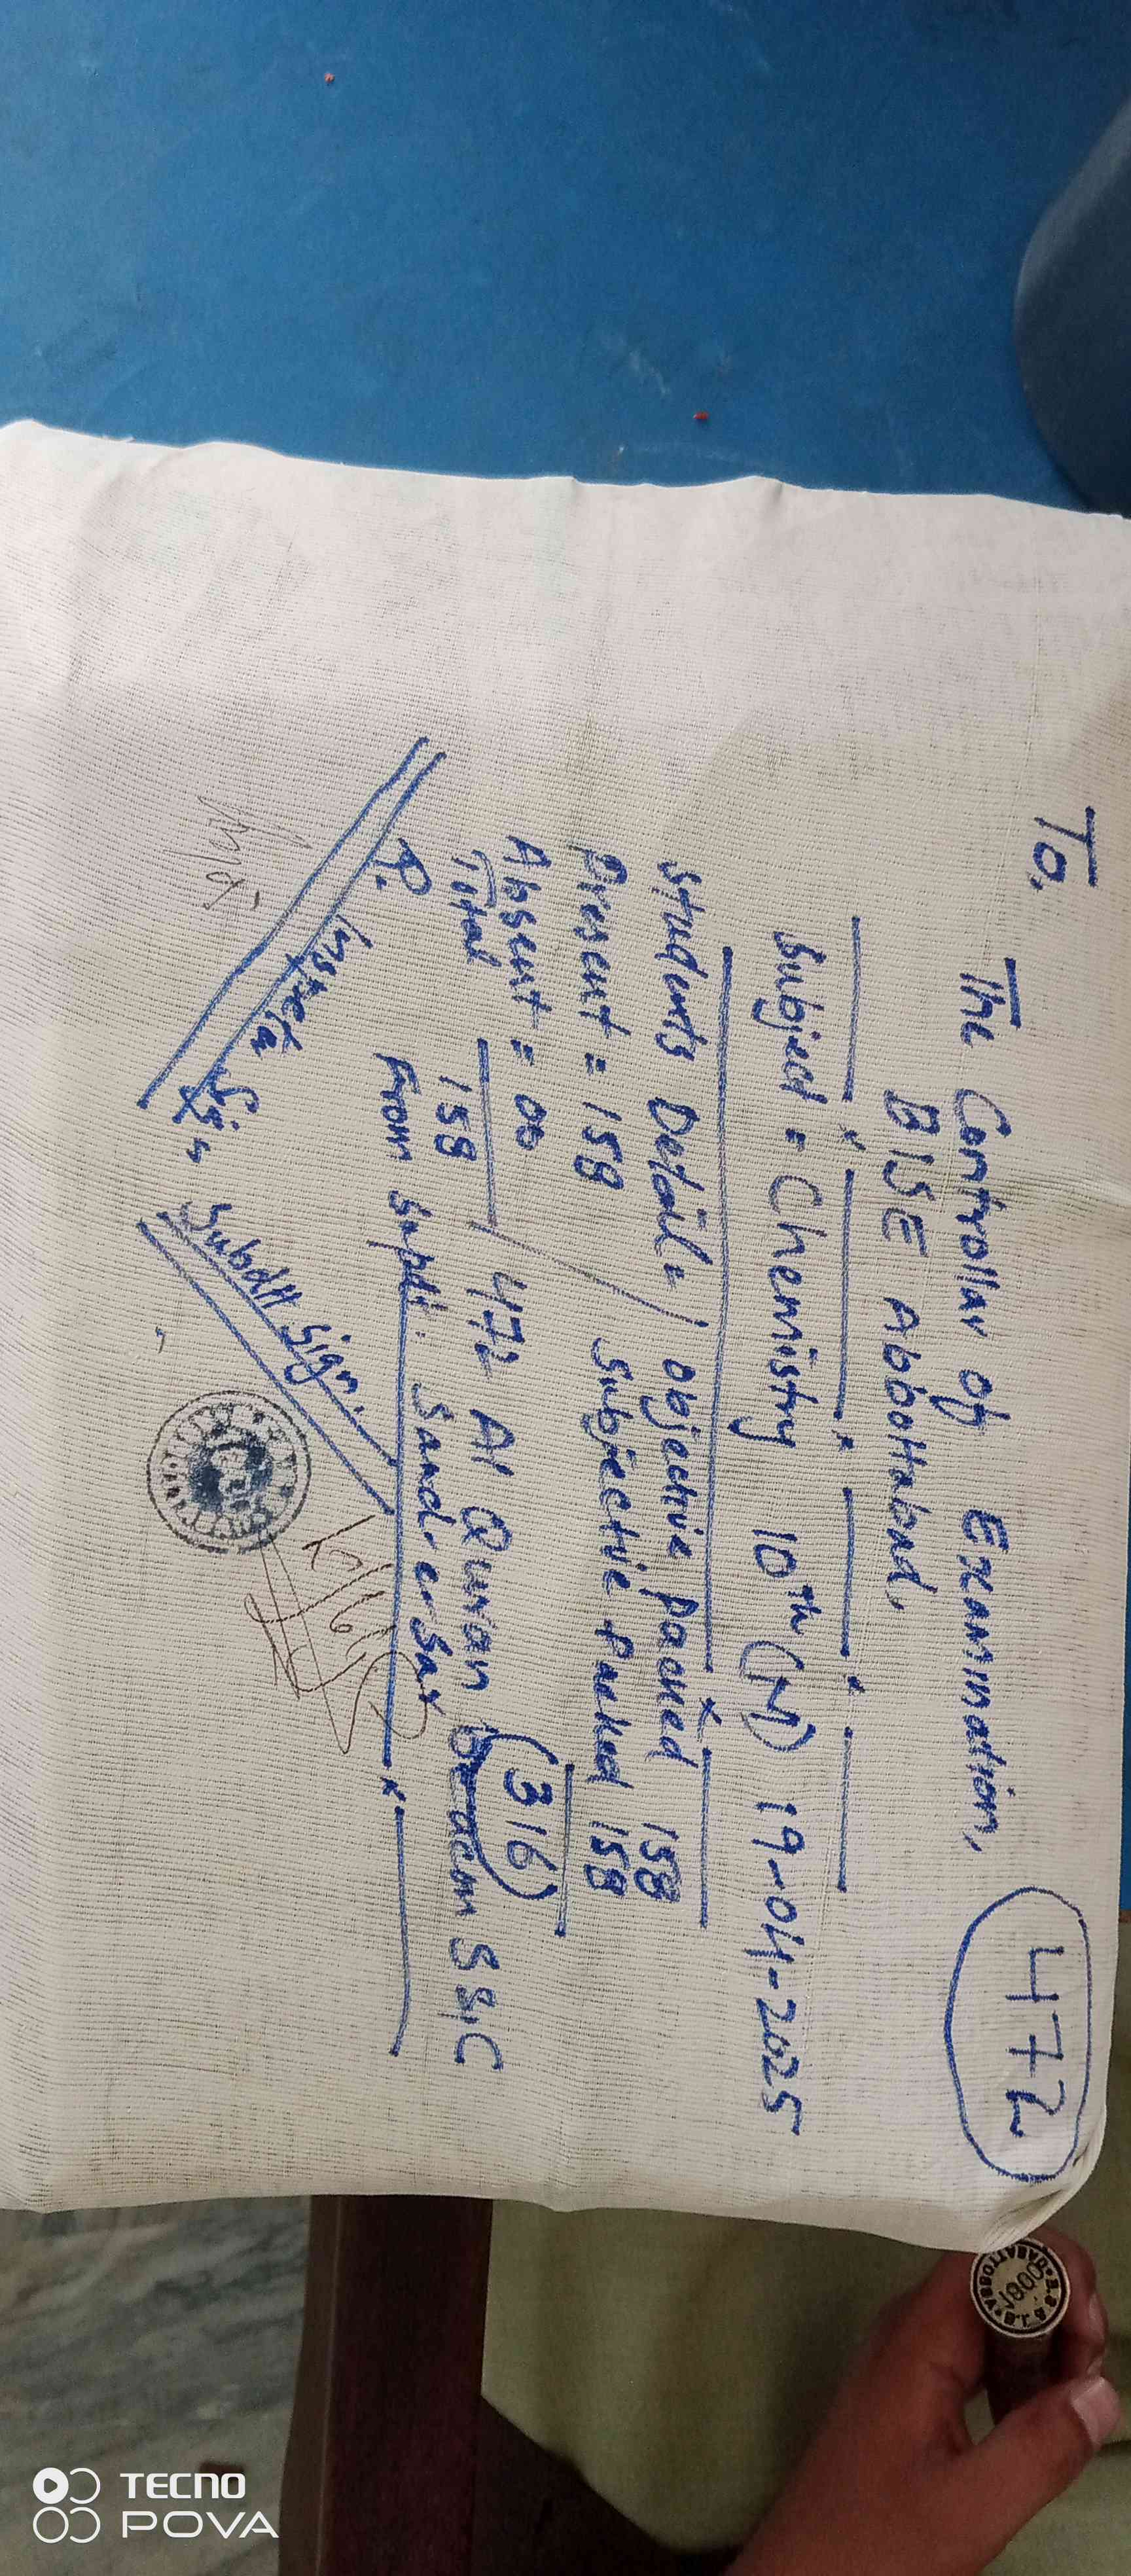 472
To,
The Controllar of Examination,
BISE Abbottabad.
Subject = Chemistry 10th (M) 19-04-2025
Students Detail = / objective packed 158
Present = 158 Subjective Packed 158
Absent = 00 (316)
Total 158 / 472 Al Quran SSC
From Supdt: Sand-e-Sar
R. Sign
Sign.
TECNO
POVA